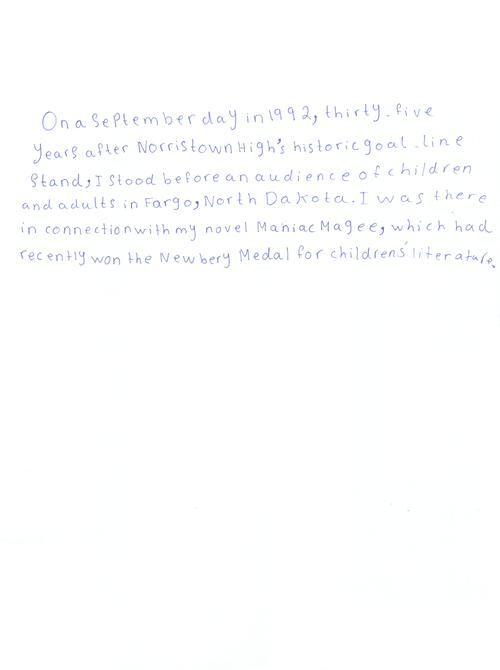 On a September day in 1992, thirty-five
years after Norristown High's historic goal-line
stand, I stood before an audience of children
and adults in Fargo, North Dakota. I was there
in connection with my novel Maniac Magee, which had
recently won the Newbery Medal for childrens' literature.